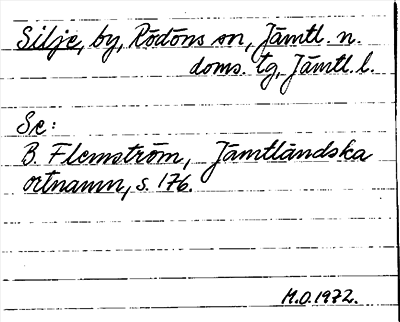 Silje, by, Rödöns sn, Jämtl. n.
doms. tg, Jämtl. l.
Se:
B. Flemström, Jämtländska
ortnamn, s. 176.
M.O. 1972.